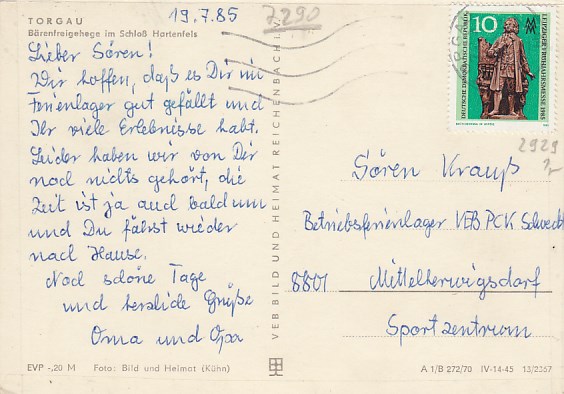 19.7.85
7290
TORGAU
Bärenfreigehege im Schloß Hartenfels
Lieber Sören!
Wir hoffen, daß es Dir im
Ferienlager gut gefällt und
Ihr viele Erlebnisse habt.
Leider haben wir von Dir
noch nichts gehört, die
Zeit ist ja auch bald um
und Du fährst wieder
nach Hause.
Noch schöne Tage
und herzliche Grüße
Oma und Opa
EVP -,20 M Foto: Bild und Heimat (Kühn)
VEB BILD UND HEIMAT REICHENBACH I. V.
10
DEUTSCHE DEMOKRATISCHE REPUBLIK
LEIPZIGER FRÜHJAHRSMESSE 1985
2929
Sören Krauß
Betriebsferienlager VEB PCK Schwedt
8801 Mittelherwigsdorf
Sportzentrum
A 1/B 272/70 IV-14-45 13/2357